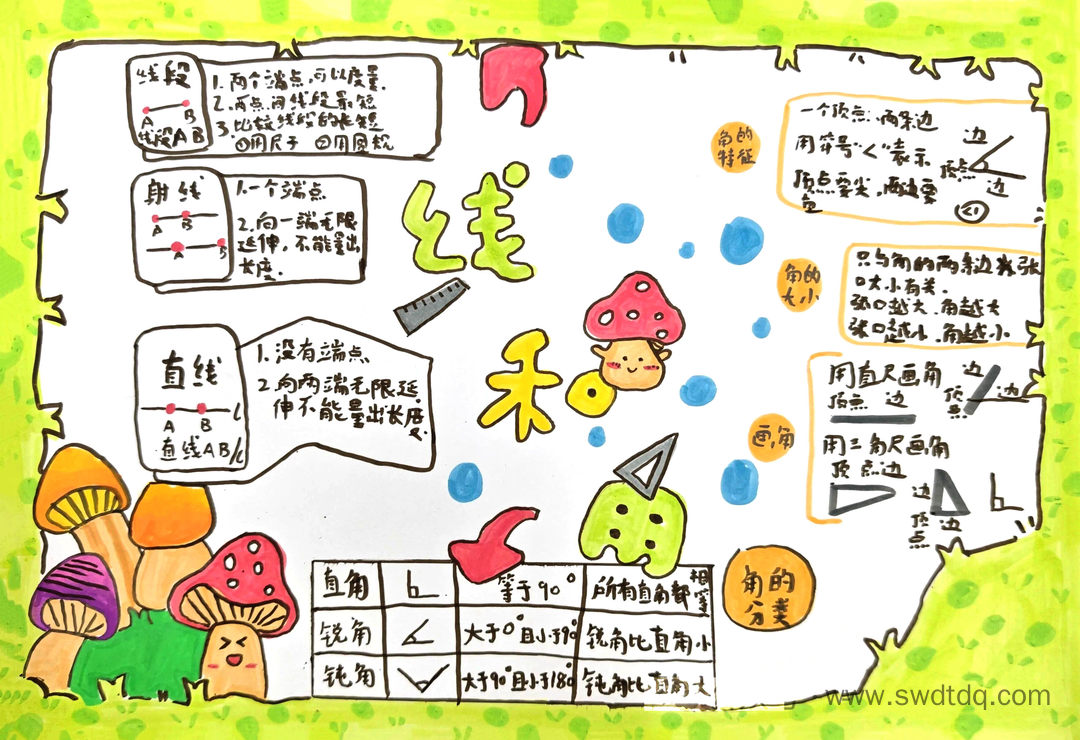 线段
A B
线段AB
1.两个端点,可以度量.
2.两点间线段最短
3.比较线段的长短
①用尺子 ②用圆规
射线
A B
A B
1.一个端点
2.向一端无限
延伸,不能量出
长度.
直线
A B l
直线AB/l
1.没有端点
2.向两端无限延
伸不能量出长度
线
和
角
角的
特征
一个顶点,两条边
用符号"∠"表示
顶点要尖,两边要
直
边
顶点
边
∠1
角的
大小
只与角的两条边张
口大小有关.
张口越大,角越大
张口越小,角越小
画角
用直尺画角
顶点 边
边
顶
点
边
用三角尺画角
顶点边
边
顶
点
边
角的
分类
直角 等于90° 所有直角都相等
锐角 大于0°且小于90° 锐角比直角小
钝角 大于90°且小于180° 钝角比直角大
www.swdtdq.com